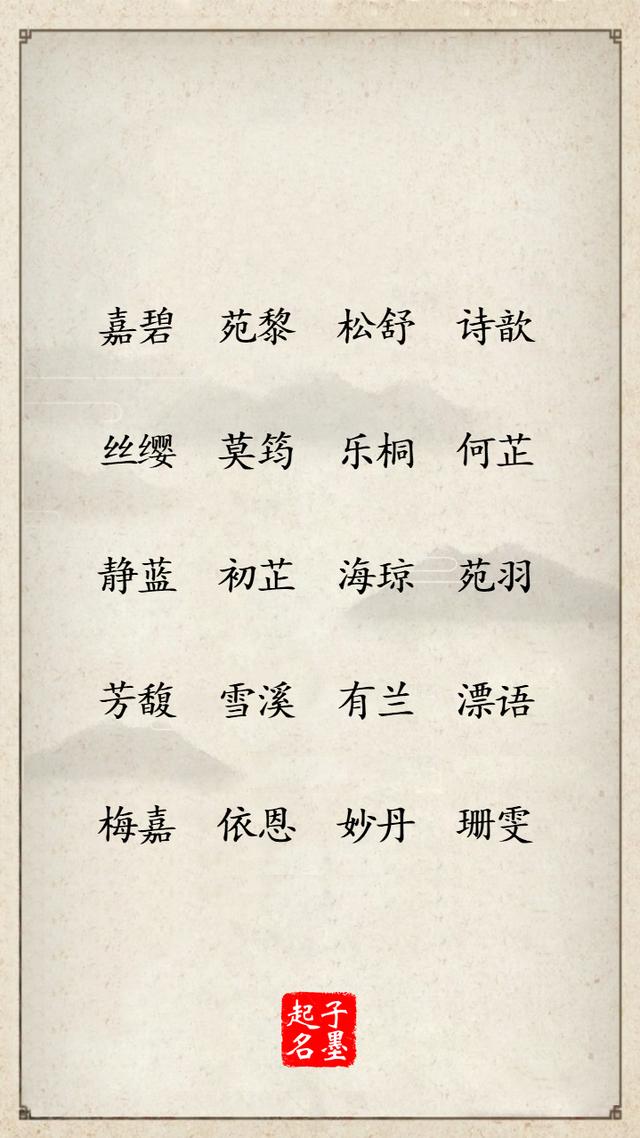 嘉碧 苑黎 松舒 诗歆
丝缨 莫筠 乐桐 何芷
静蓝 初芷 海琼 苑羽
芳馥 雪溪 有兰 漂语
梅嘉 依恩 妙丹 珊雯
子墨
起名